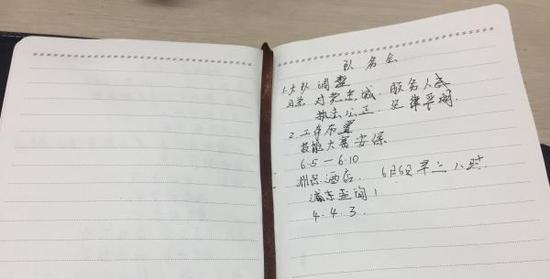 队务会
1. 大队调整
对党忠诚、服务人民
执法公正、纪律严明
2. 工作布置
技能大赛安保
6.5 — 6.10
酒店、6月5日早上八时
4.4.3.